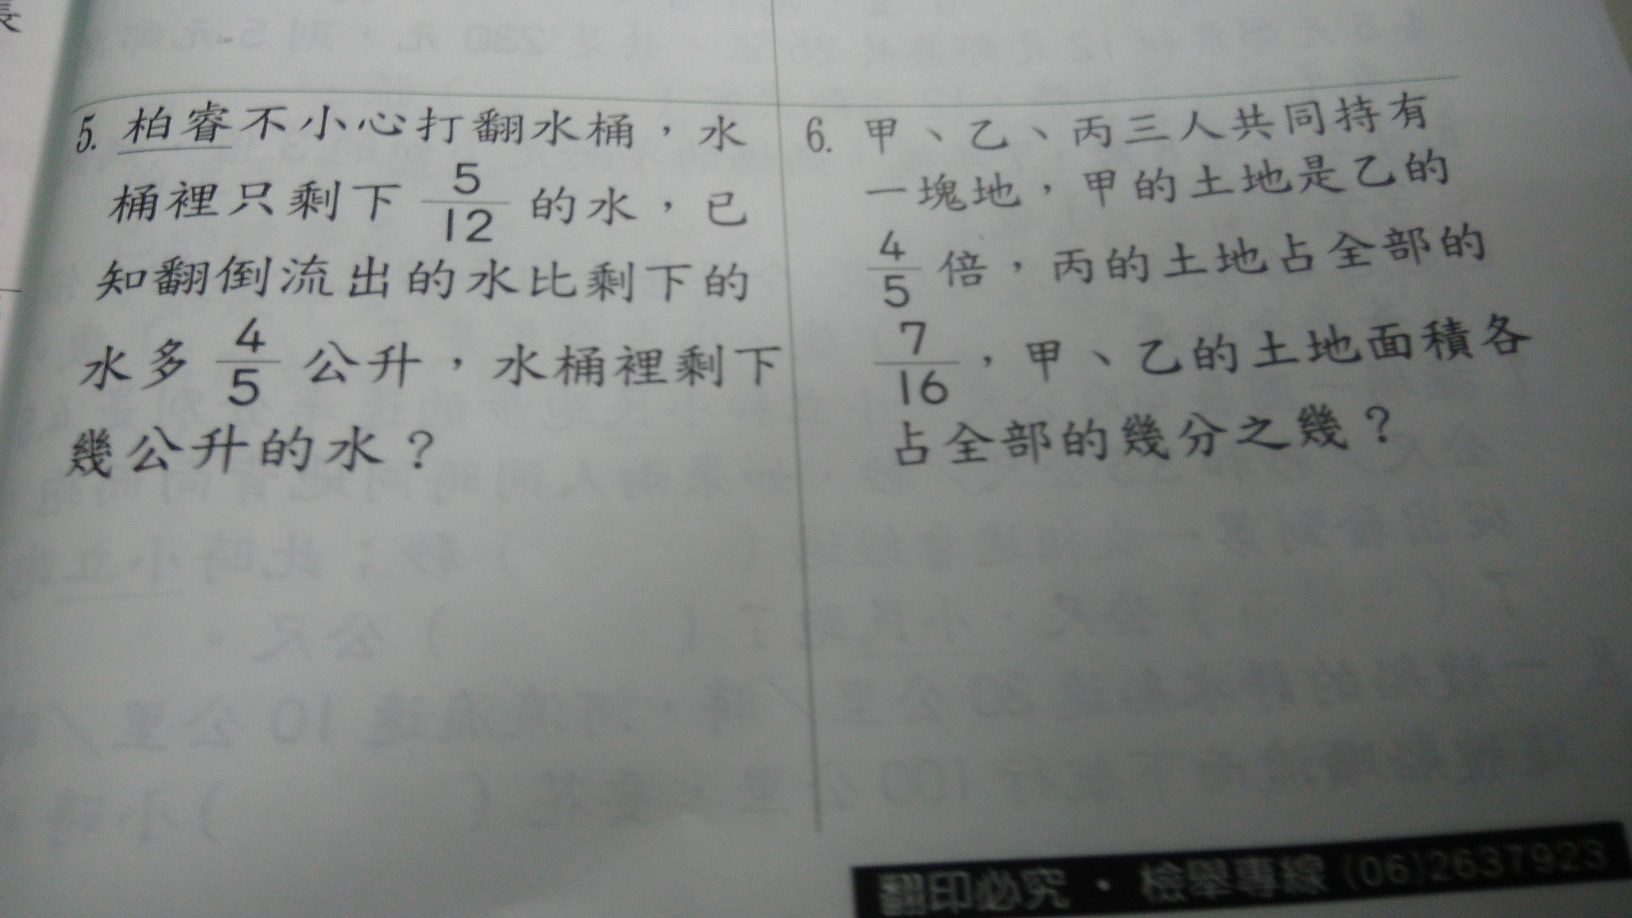 長
5. 柏睿不小心打翻水桶，水
桶裡只剩下 5/12 的水，已
知翻倒流出的水比剩下的
水多 4/5 公升，水桶裡剩下
幾公升的水？
6. 甲、乙、丙三人共同持有
一塊地，甲的土地是乙的
4/5 倍，丙的土地占全部的
7/16，甲、乙的土地面積各
占全部的幾分之幾？
翻印必究・檢舉專線(06)2637923